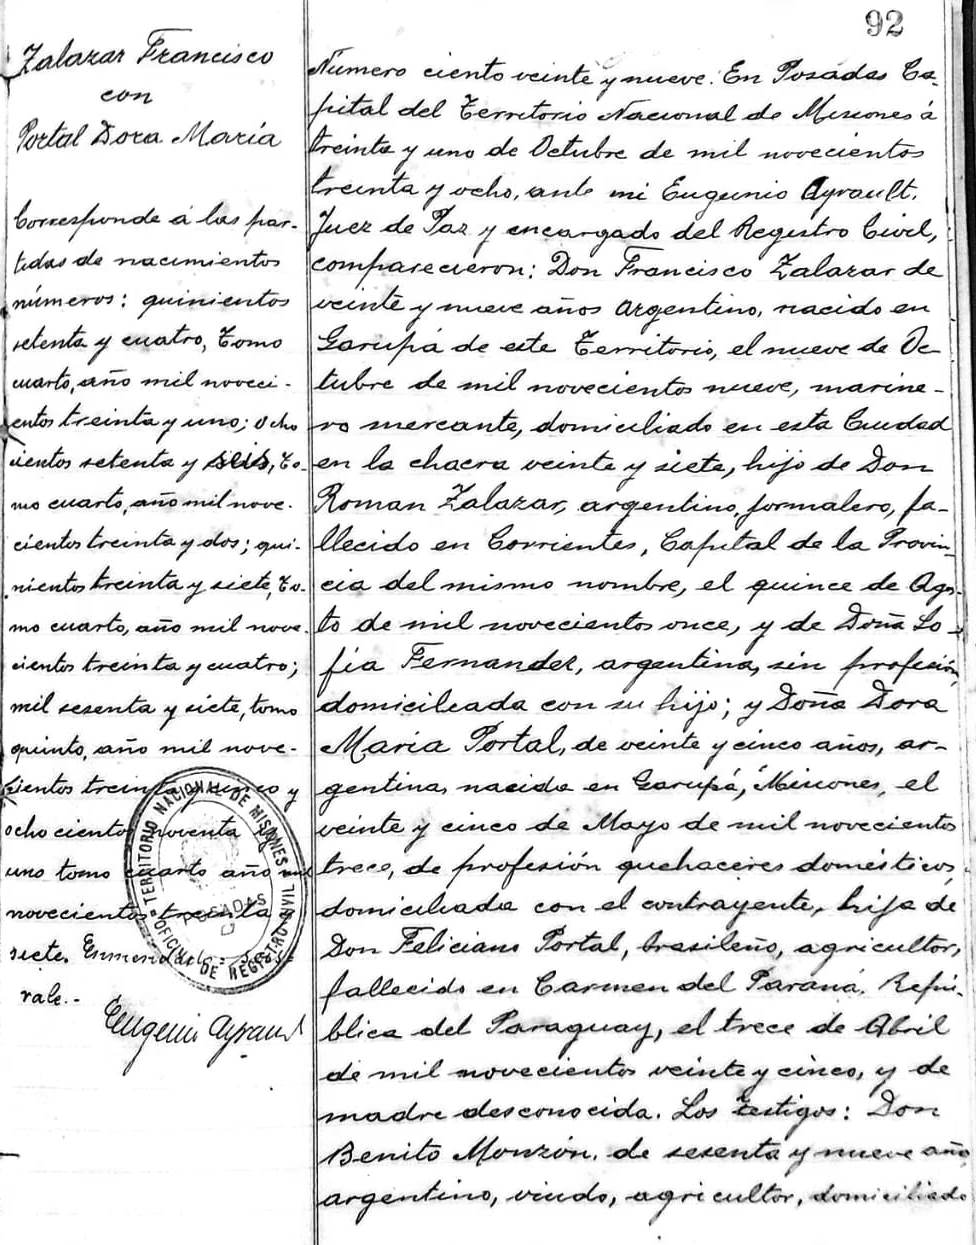 92
Zalazar Francisco
con
Portal Dora María
Corresponde á las par-
tidas de nacimientos
números: quinientos
setenta y cuatro, Tomo
cuarto, año mil noveci-
entos treinta y uno; ocho
cientos setenta y seis, to-
mo cuarto, año mil nove-
cientos treinta y dos; qui-
nientos treinta y siete, to-
mo cuarto, año mil nove-
cientos treinta y cuatro;
mil sesenta y siete, tomo
quinto, año mil nove-
cientos treinta y cinco y
ochocientos noventa y
uno tomo cuarto año mil
novecientos treinta y
siete. Enmendado:
vale.-
Eugenio Ayrault
TERRITORIO NACIONAL DE MISIONES
POSADAS
OFICIAL DE REGISTRO CIVIL
Número ciento veinte y nueve. En Posadas Ca-
pital del Territorio Nacional de Misiones á
treinta y uno de Octubre de mil novecientos
treinta y ocho, ante mi Eugenio Ayrault.
Juez de Paz y encargado del Registro Civil,
comparecieron: Don Francisco Zalazar de
veinte y nueve años argentino, nacido en
Garupá de este Territorio, el nueve de Oc-
tubre de mil novecientos nueve, marine-
ro mercante, domiciliado en esta Ciudad
en la chacra veinte y siete, hijo de Don
Roman Zalazar, argentino, jornalero, fa-
llecido en Corrientes, Capital de la Provin-
cia del mismo nombre, el quince de Agos-
to de mil novecientos once, y de Doña So-
fia Fernandez, argentina, sin profesión,
domiciliada con su hijo; y Doña Dora
María Portal, de veinte y cinco años, ar-
gentina, nacida en Garupá, Misiones, el
veinte y cinco de Mayo de mil novecientos
trece, de profesión quehaceres domésticos,
domiciliada con el contrayente, hija de
Don Feliciano Portal, brasileño, agricultor,
fallecido en Carmen del Paraná, Repú-
blica del Paraguay, el trece de Abril
de mil novecientos veinte y cinco, y de
madre desconocida. Los testigos: Don
Benito Monzón, de sesenta y nueve años
argentino, viudo, agricultor, domiciliado